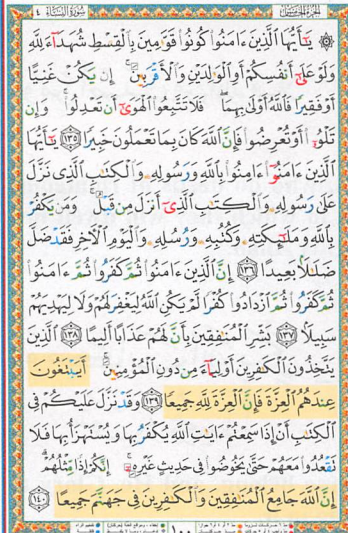 الجزء الخامس سورة النساء ٤
۞ يَٰٓأَيُّهَا ٱلَّذِينَ ءَامَنُوا۟ كُونُوا۟ قَوَّٰمِينَ بِٱلْقِسْطِ شُهَدَآءَ لِلَّهِ
وَلَوْ عَلَىٰٓ أَنفُسِكُمْ أَوِ ٱلْوَٰلِدَيْنِ وَٱلْأَقْرَبِينَ ۚ إِن يَكُنْ غَنِيًّا
أَوْ فَقِيرًا فَٱللَّهُ أَوْلَىٰ بِهِمَا ۖ فَلَا تَتَّبِعُوا۟ ٱلْهَوَىٰٓ أَن تَعْدِلُوا۟ ۚ وَإِن
تَلْوُۥٓا۟ أَوْ تُعْرِضُوا۟ فَإِنَّ ٱللَّهَ كَانَ بِمَا تَعْمَلُونَ خَبِيرًا ١٣٥ يَٰٓأَيُّهَا
ٱلَّذِينَ ءَامَنُوٓا۟ ءَامِنُوا۟ بِٱللَّهِ وَرَسُولِهِۦ وَٱلْكِتَٰبِ ٱلَّذِى نَزَّلَ
عَلَىٰ رَسُولِهِۦ وَٱلْكِتَٰبِ ٱلَّذِىٓ أَنزَلَ مِن قَبْلُ ۚ وَمَن يَكْفُرْ
بِٱللَّهِ وَمَلَٰٓئِكَتِهِۦ وَكُتُبِهِۦ وَرُسُلِهِۦ وَٱلْيَوْمِ ٱلْءَاخِرِ فَقَدْ ضَلَّ
ضَلَٰلًۢا بَعِيدًا ١٣٦ إِنَّ ٱلَّذِينَ ءَامَنُوا۟ ثُمَّ كَفَرُوا۟ ثُمَّ ءَامَنُوا۟
ثُمَّ كَفَرُوا۟ ثُمَّ ٱزْدَادُوا۟ كُفْرًا لَّمْ يَكُنِ ٱللَّهُ لِيَغْفِرَ لَهُمْ وَلَا لِيَهْدِيَهُمْ
سَبِيلًۢا ١٣٧ بَشِّرِ ٱلْمُنَٰفِقِينَ بِأَنَّ لَهُمْ عَذَابًا أَلِيمًا ١٣٨ ٱلَّذِينَ
يَتَّخِذُونَ ٱلْكَٰفِرِينَ أَوْلِيَآءَ مِن دُونِ ٱلْمُؤْمِنِينَ ۚ أَيَبْتَغُونَ
عِندَهُمُ ٱلْعِزَّةَ فَإِنَّ ٱلْعِزَّةَ لِلَّهِ جَمِيعًا ١٣٩ وَقَدْ نَزَّلَ عَلَيْكُمْ فِى
ٱلْكِتَٰبِ أَنْ إِذَا سَمِعْتُمْ ءَايَٰتِ ٱللَّهِ يُكْفَرُ بِهَا وَيُسْتَهْزَأُ بِهَا فَلَا
تَقْعُدُوا۟ مَعَهُمْ حَتَّىٰ يَخُوضُوا۟ فِى حَدِيثٍ غَيْرِهِۦٓ ۚ إِنَّكُمْ إِذًا مِّثْلُهُمْ ۗ
إِنَّ ٱللَّهَ جَامِعُ ٱلْمُنَٰفِقِينَ وَٱلْكَٰفِرِينَ فِى جَهَنَّمَ جَمِيعًا ١٤٠
١٠٠